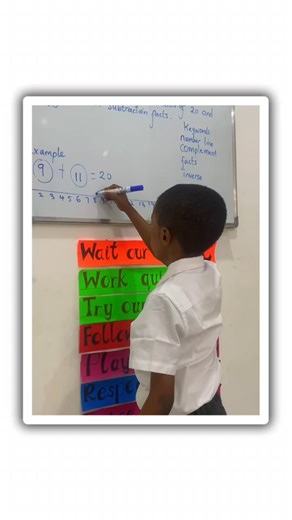 of 20 and
subtraction facts.
Keywords
number line
Complement
facts
inverse
Example
9 + 11 = 20
2 3 4 5 6 7 8
Wait our
Work
Try our
Follow
Play
Respe